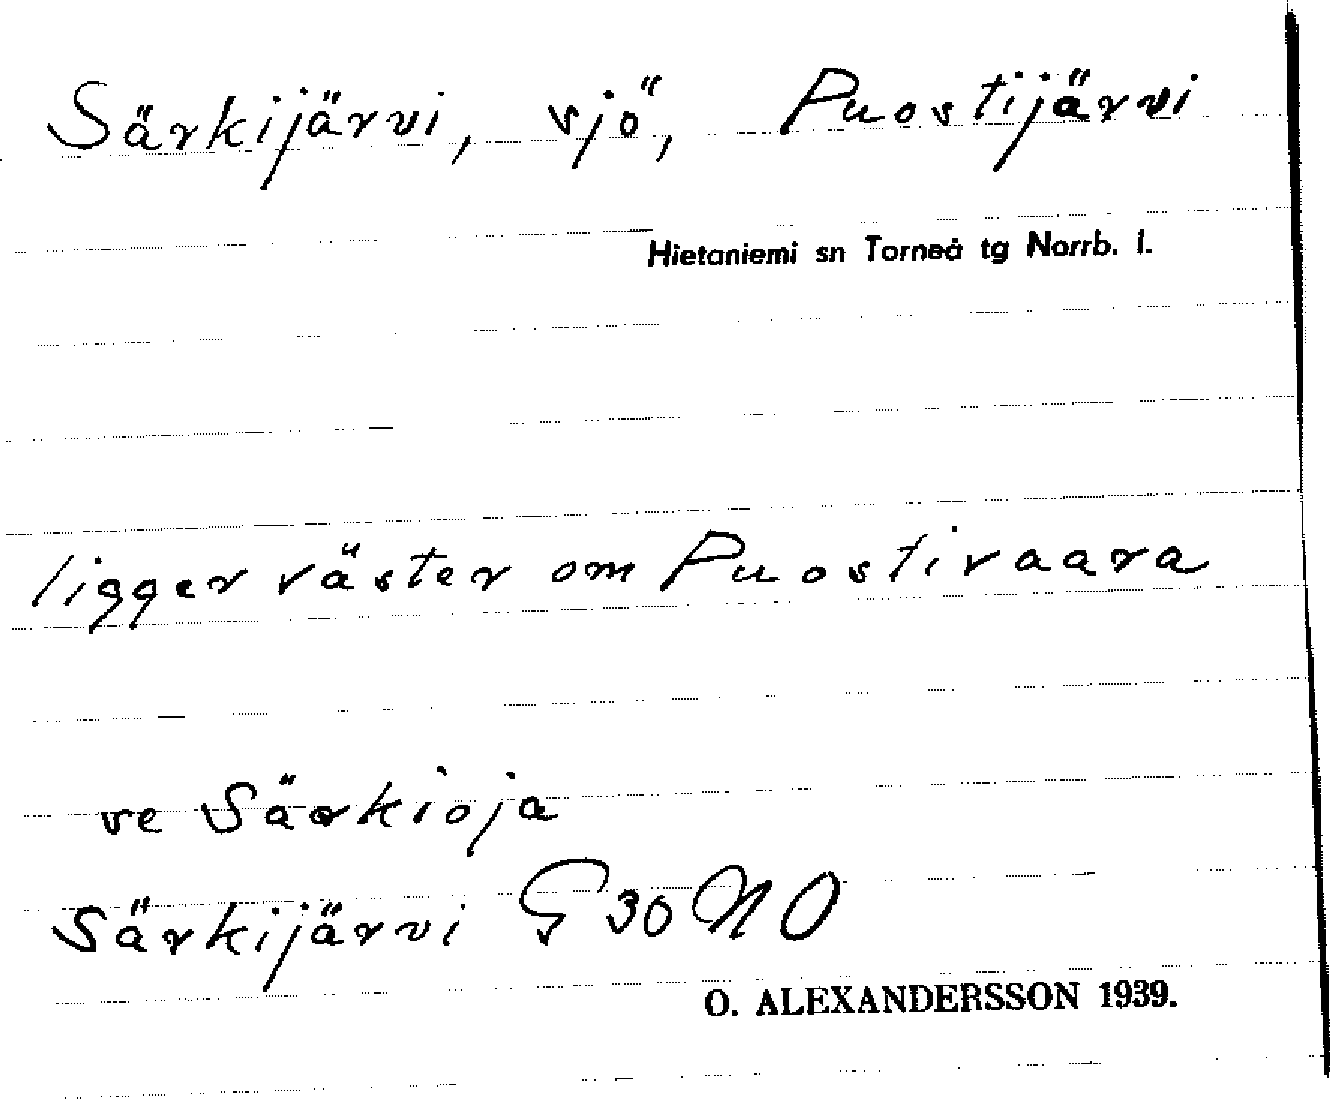 Särkijärvi, sjö, Puostijärvi
Hietaniemi sn Torneå tg Norrb. l.
ligger väster om Puostivaara
ve Särkioja
Särkijärvi G 30 NO
O. ALEXANDERSSON 1939.